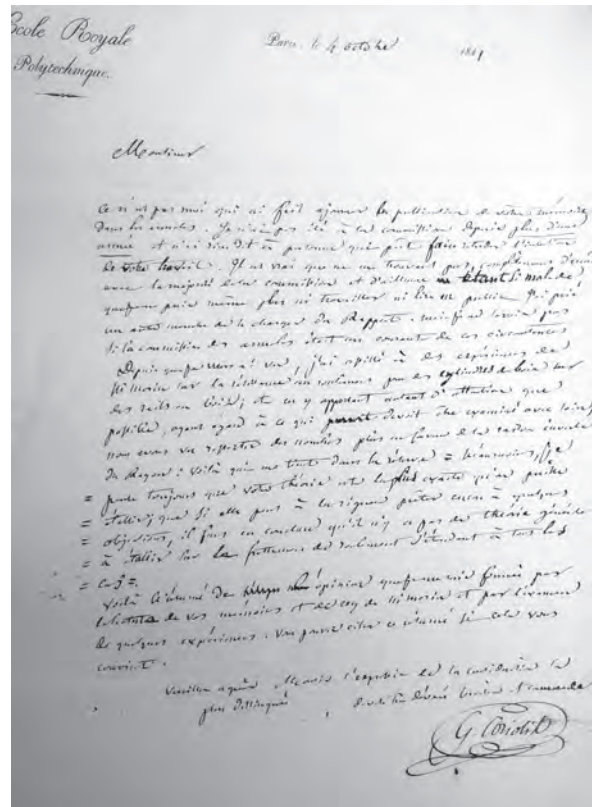 École Royale
Polytechnique.
Paris, le 4 octobre 1841
Monsieur
Ce n'est pas moi qui ai fait ajourner la publication de votre mémoire
dans les annales. Je n'ai pas été à la commission depuis plus d'une
année et n'ai rien dit à personne qui pût faire retarder l'insertion
de votre travail. Il est vrai que ne me trouvant pas complètement d'accord
avec la majorité de la commission et d'ailleurs étant si mal de
que je ne puis même plus ni travailler ni lire en public. J'ai prié
un autre membre de se charger du Rapport. mais je ne savais pas
si la commission des annales était au courant de ces circonstances
Depuis que je vous ai vu, j'ai assisté à des expériences de
Mr Morin sur la résistance au roulement pour des cylindres de bois sur
des rails en bois; et en y apportant autant d'attention que
possible, ayant égard à ce qui devait être examiné avec soin,
nous avons vu ressortir des nombres plus en faveur de la raison inverse
du Rayon: voilà qui me tient dans la réserve = Néanmoins, je
= pense toujours que votre théorie est la plus exacte qu'on puisse
= établir; que si elle peut à la rigueur prêter encore à quelques
= objections, il faut en conclure qu'il n'y a pas de théorie générale
= à établir sur le frottement de roulement s'étendant à tous les
= cas =.
Voilà le résumé de opinion que je me suis formée par
la lecture de vos mémoires et de ceux de Mr Morin et par l'examen
de quelques expériences. Vous pouvez citer ce résumé si cela vous
convient.
Veuillez agréer Monsieur l'expression de la considération la
plus distinguée de votre dévoué serviteur et camarade
G. Coriolis